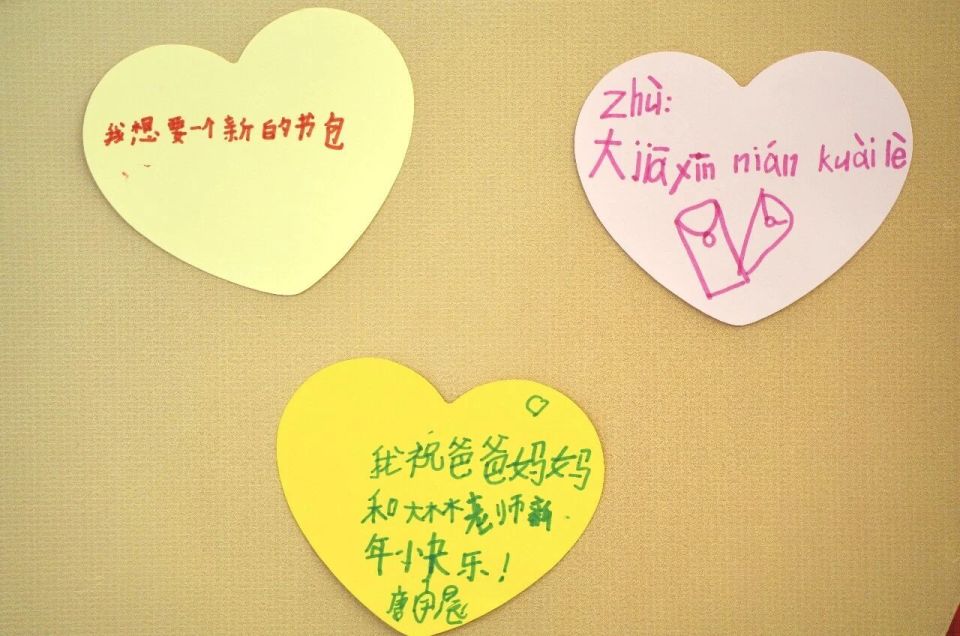 我想要一个新的书包
zhù:
大jiā xīn nián kuài lè
我祝爸爸妈妈
和大林木老师新
年快乐!